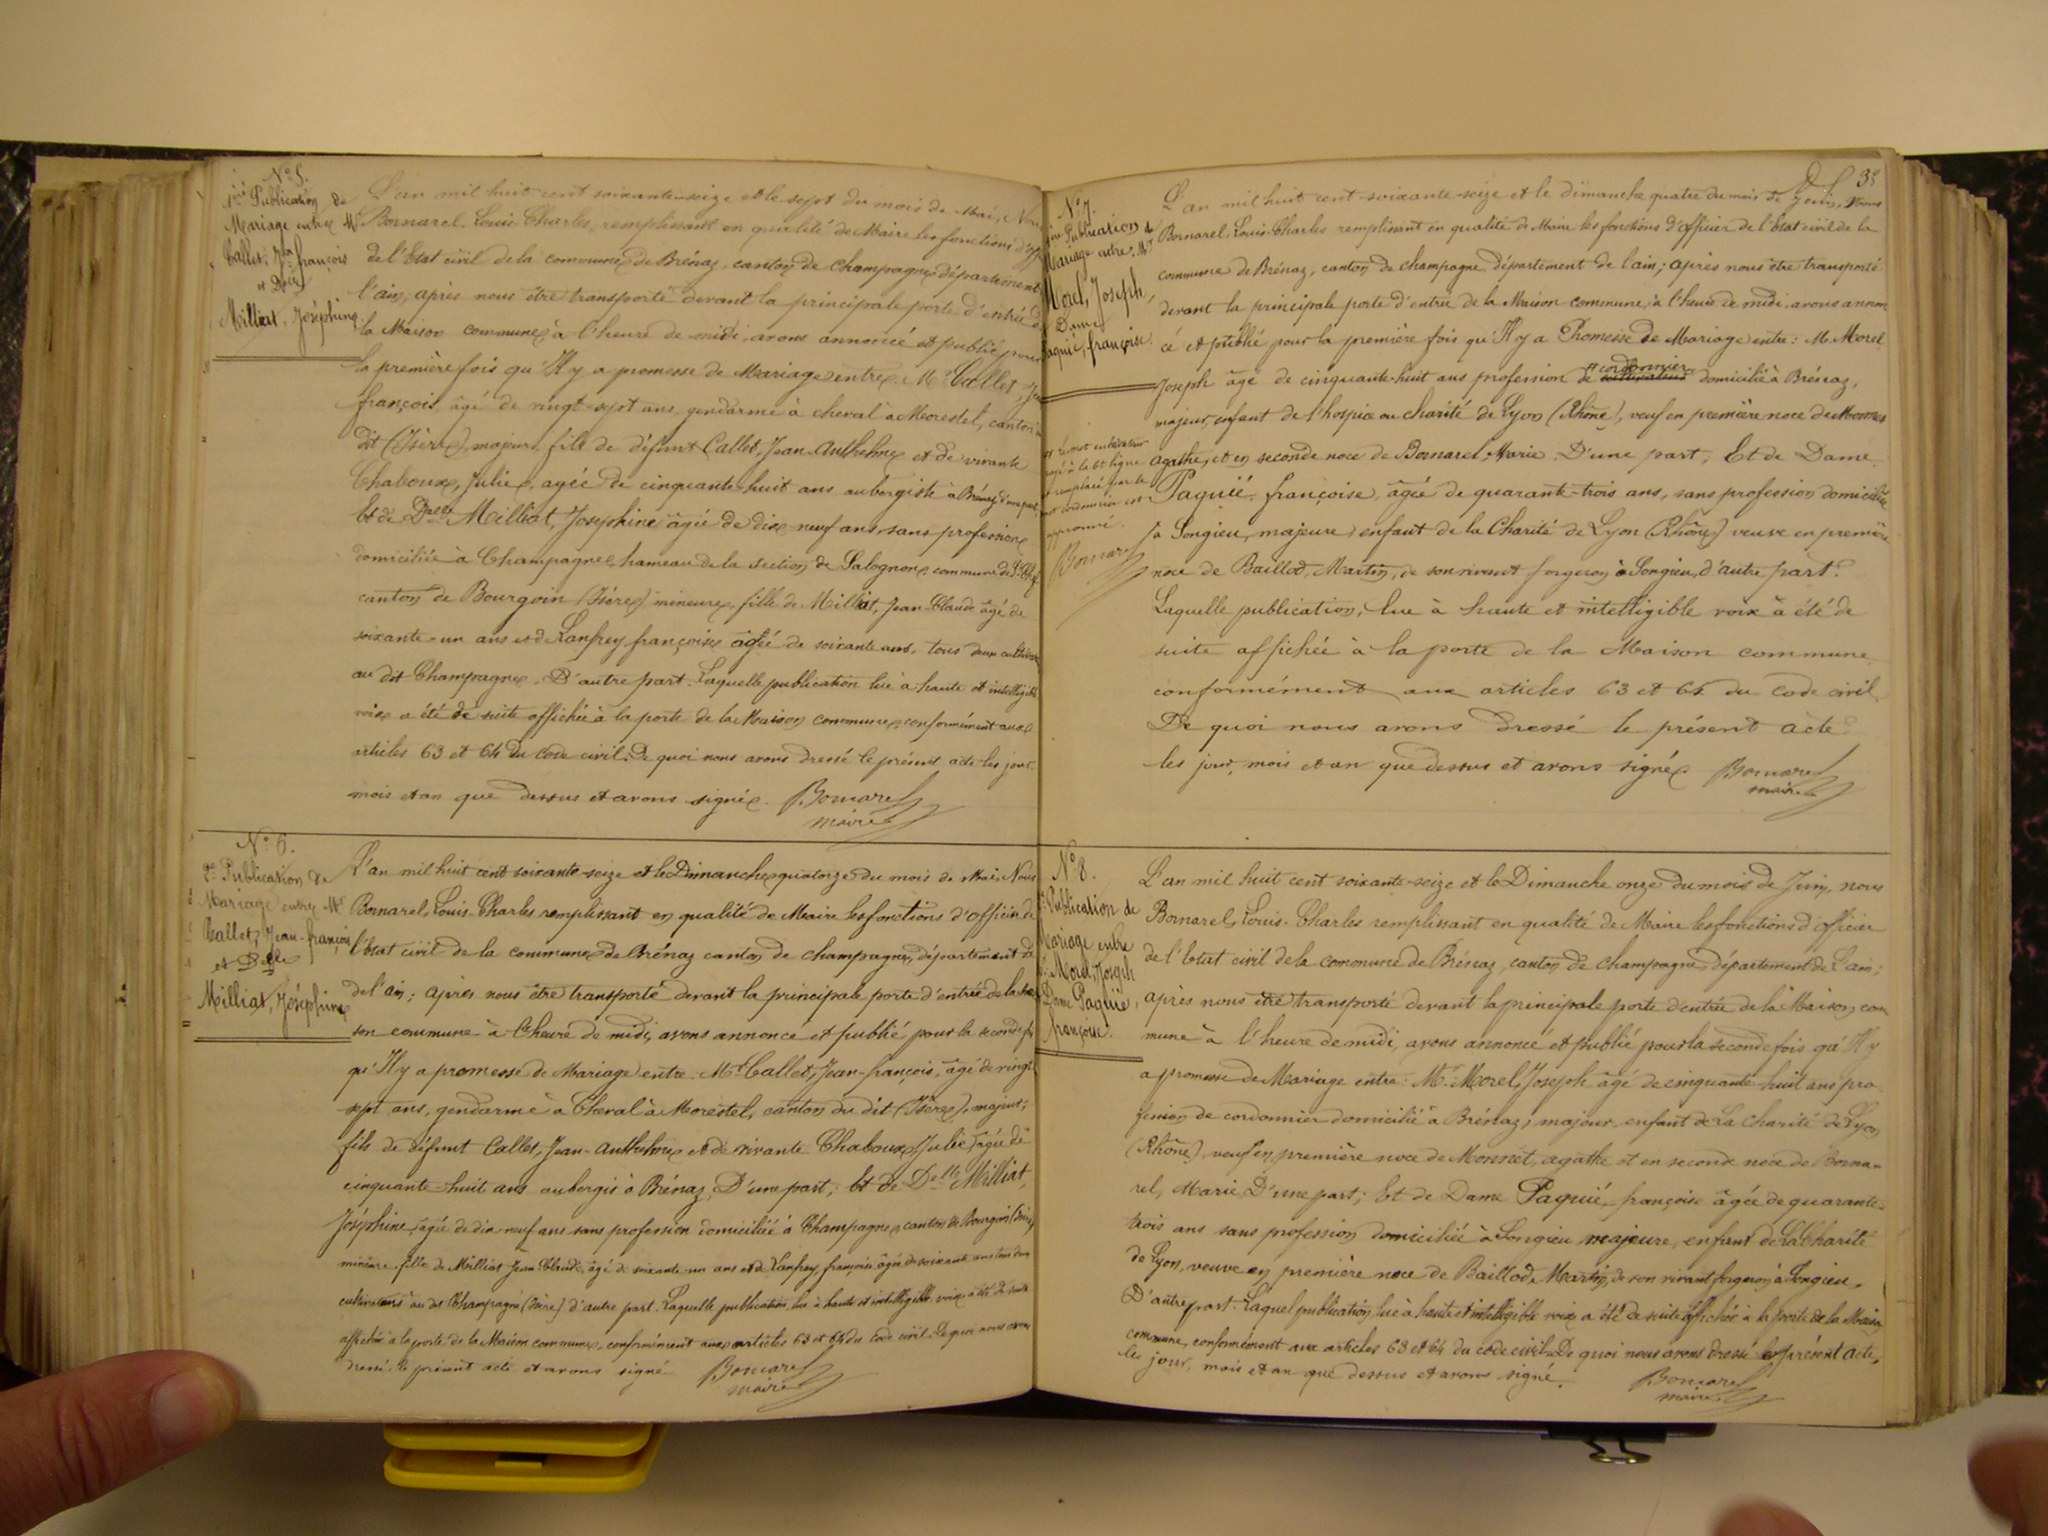 N° 5.
1ère Publication de
Mariage entre Mr
Callet, Jean françois
et Delle
Milliat, Joséphine
L'an mil huit cent soixante-seize et le sept du mois de Mai, Nous
Bornarel, Louis-Charles, remplissant en qualité de Maire les fonctions d'off
de l'Etat civil de la commune de Brénaz, canton de champagne département
l'ain, après nous être transporté devant la principale porte d'entrée de
la Maison commune à l'heure de midi, avons annoncé et publié pour
la première fois qu'Il y a promesse de Mariage entre Mr Callet, Jean
françois âgé de vingt-sept ans, gendarme à cheval à Morestel, canton du
dit (Isère), majeur, fils de défunt Callet, Jean-Anthelme et de vivante
Chaboux, Julie, agée de cinquante-huit ans aubergiste à Brénaz d'une part
Et de Delle Milliat, Josephine âgée de dix neuf ans, sans profession
domiciliée à Champagne hameau de la section de Salagnon, commune de St Chef
canton de Bourgoin (Isère) mineure, fille de Milliat, Jean-Claude âgé de
soixante-un ans et de Lanfrey françoise âgée de soixante ans, tous deux cultivateurs
au dit Champagne. D'autre part. Laquelle publication lue à haute et intelligible
voix a été de suite affichée à la porte de la Maison commune, conformément aux
articles 63 et 64 du code civil. De quoi nous avons dressé le présent acte les jour
mois et an que dessus et avons signé. Bornarel
maire
N° 6.
2e Publication de
Mariage entre Mr
Callet, Jean-françois
et Delle
Milliat, Joséphine
L'an mil huit cent soixante-seize et le Dimanche quatorze du mois de Mai, Nous
Bornarel, Louis-Charles remplissant en qualité de Maire les fonctions d'officier de
l'Etat civil de la commune de Brénaz canton de champagne, département de
de l'ain; après nous être transporté devant la principale porte d'entrée de la Mai
son commune à l'heure de midi, avons annoncé et publié pour la seconde fois
qu'Il y a promesse de Mariage entre Mr Callet, Jean-françois, âgé de vingt
sept ans, gendarme à Cheval à Morestel, canton du dit (Isère), majeur,
fils de défunt Callet, Jean-Anthelme et de vivante Chaboux, Julie, agée de
cinquante-huit ans aubergis à Brénaz, D'une part; Et de Delle Milliat,
Joséphine, agée de dix-neuf ans sans profession domiciliée à Champagne canton de Bourgoin (Isère)
mineure, fille de Milliat Jean Claude, âgé de soixante-un ans et de Lanfrey, françoise âgée de soixante ans tous deux
cultivateurs au dit Champagne (Isère) d'autre part. Laquelle publication, lue à haute et intelligible voix a été de suite
affichée à la porte de la Maison commune, conformément aux articles 63 et 64 du code civil. De quoi nous avons
dressé le présent acte et avons signé Bornarel
maire
35
N° 7.
1ère Publication de
Mariage entre Mr
Morel, Joseph,
Dame
Paquié, françoise.
L'an mil huit cent soixante-seize et le dimanche quatre du mois de Juin, Nous
Bornarel, Louis-Charles remplissant en qualité de Maire les fonctions d'officier de l'Etat civil de la
commune de Brénaz, canton de champagne département de l'ain; après nous être transporté
devant la principale porte d'entrée de la Maison commune, à l'heure de midi avons annon
cé et publié pour la première fois qu'Il y a Promesse de Mariage entre: Mr Morel
cordonnier
Joseph âgé de cinquante-huit ans profession de cultivateur domicilié à Brénaz,
majeur, enfant de l'hospice ou charité de Lyon (Rhône), veuf en première noce de Monnet
agathe, et en seconde noce de Bornarel Marie. D'une part, Et de Dame
Paquié, françoise, âgée de quarante-trois ans, sans profession domiciliée
à Songieu, majeure, enfant de la Charité de Lyon (Rhône) veuve en première
noce de Baillod, Martin, de son vivant forgeron à Songieu, d'autre part.
Laquelle publication, lue à haute et intelligible voix à été de
suite affichée à la porte de la Maison commune
conformément aux articles 63 et 64 du code civil
De quoi nous avons dressé le présent acte
les jour, mois et an que dessus et avons signé. Bornarel
maire
le mot cultivateur
rayé à la 6e ligne
et remplacé par le
mot cordonnier est
approuvé.
Bornarel
N° 8.
2e Publication de
Mariage entre
Mr Morel, Joseph
Dame Paquié,
françoise.
L'an mil huit cent soixante-seize et le Dimanche onze du mois de Juin, nous
Bornarel, Louis-Charles remplissant en qualité de Maire les fonctions d'officier
de l'Etat civil de la commune de Brénaz, canton de champagne, département de L'ain;
après nous être transporté devant la principale porte d'entrée de la Maison com
mune à l'heure de midi, avons annoncé et publié pour la seconde fois qu'Il y
a promesse de Mariage entre: Mr Morel, Joseph âgé de cinquante-huit ans pro
fession de cordonnier domicilié à Brénaz, majeur, enfant de La charité de Lyon
(Rhône), veuf en première noce de Monnet, agathe et en seconde noce de Borna-
rel, Marie, D'une part; Et de Dame Paquié, françoise âgée de quarante-
trois ans sans profession domiciliée à Songieu majeure, enfant de La Charité
de Lyon, veuve en première noce de Baillod, Martin, de son vivant forgeron à Songieu.
D'autre part. Laquel publication, lue à haute et intelligible voix a été de suite affichée à la porte de la Maison
commune, conformément aux articles 63 et 64 du code civil. De quoi nous avons dressé le présent acte,
les jour, mois et an que dessus et avons signé. Bornarel
maire